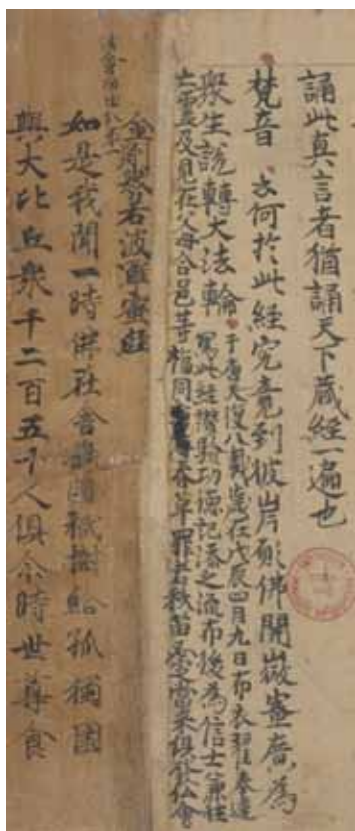 誦此真言者猶誦天下藏經一遍也
梵音 云何於此經究竟到彼岸願佛開微蜜廣為
衆生說轉大法輪
于唐天復八載歲在戊辰四月九日布衣翟奉達
寫此經讚驗功德記添之流布後為信士兼往
亡靈及見在父母合邑等福同春草罪若秋苗必當來俱登仏會
金剛般若波羅蜜經
法會因由分第一
如是我聞一時佛在舍衛國祇樹給孤獨園
與大比丘衆千二百五十人俱尒時世尊食